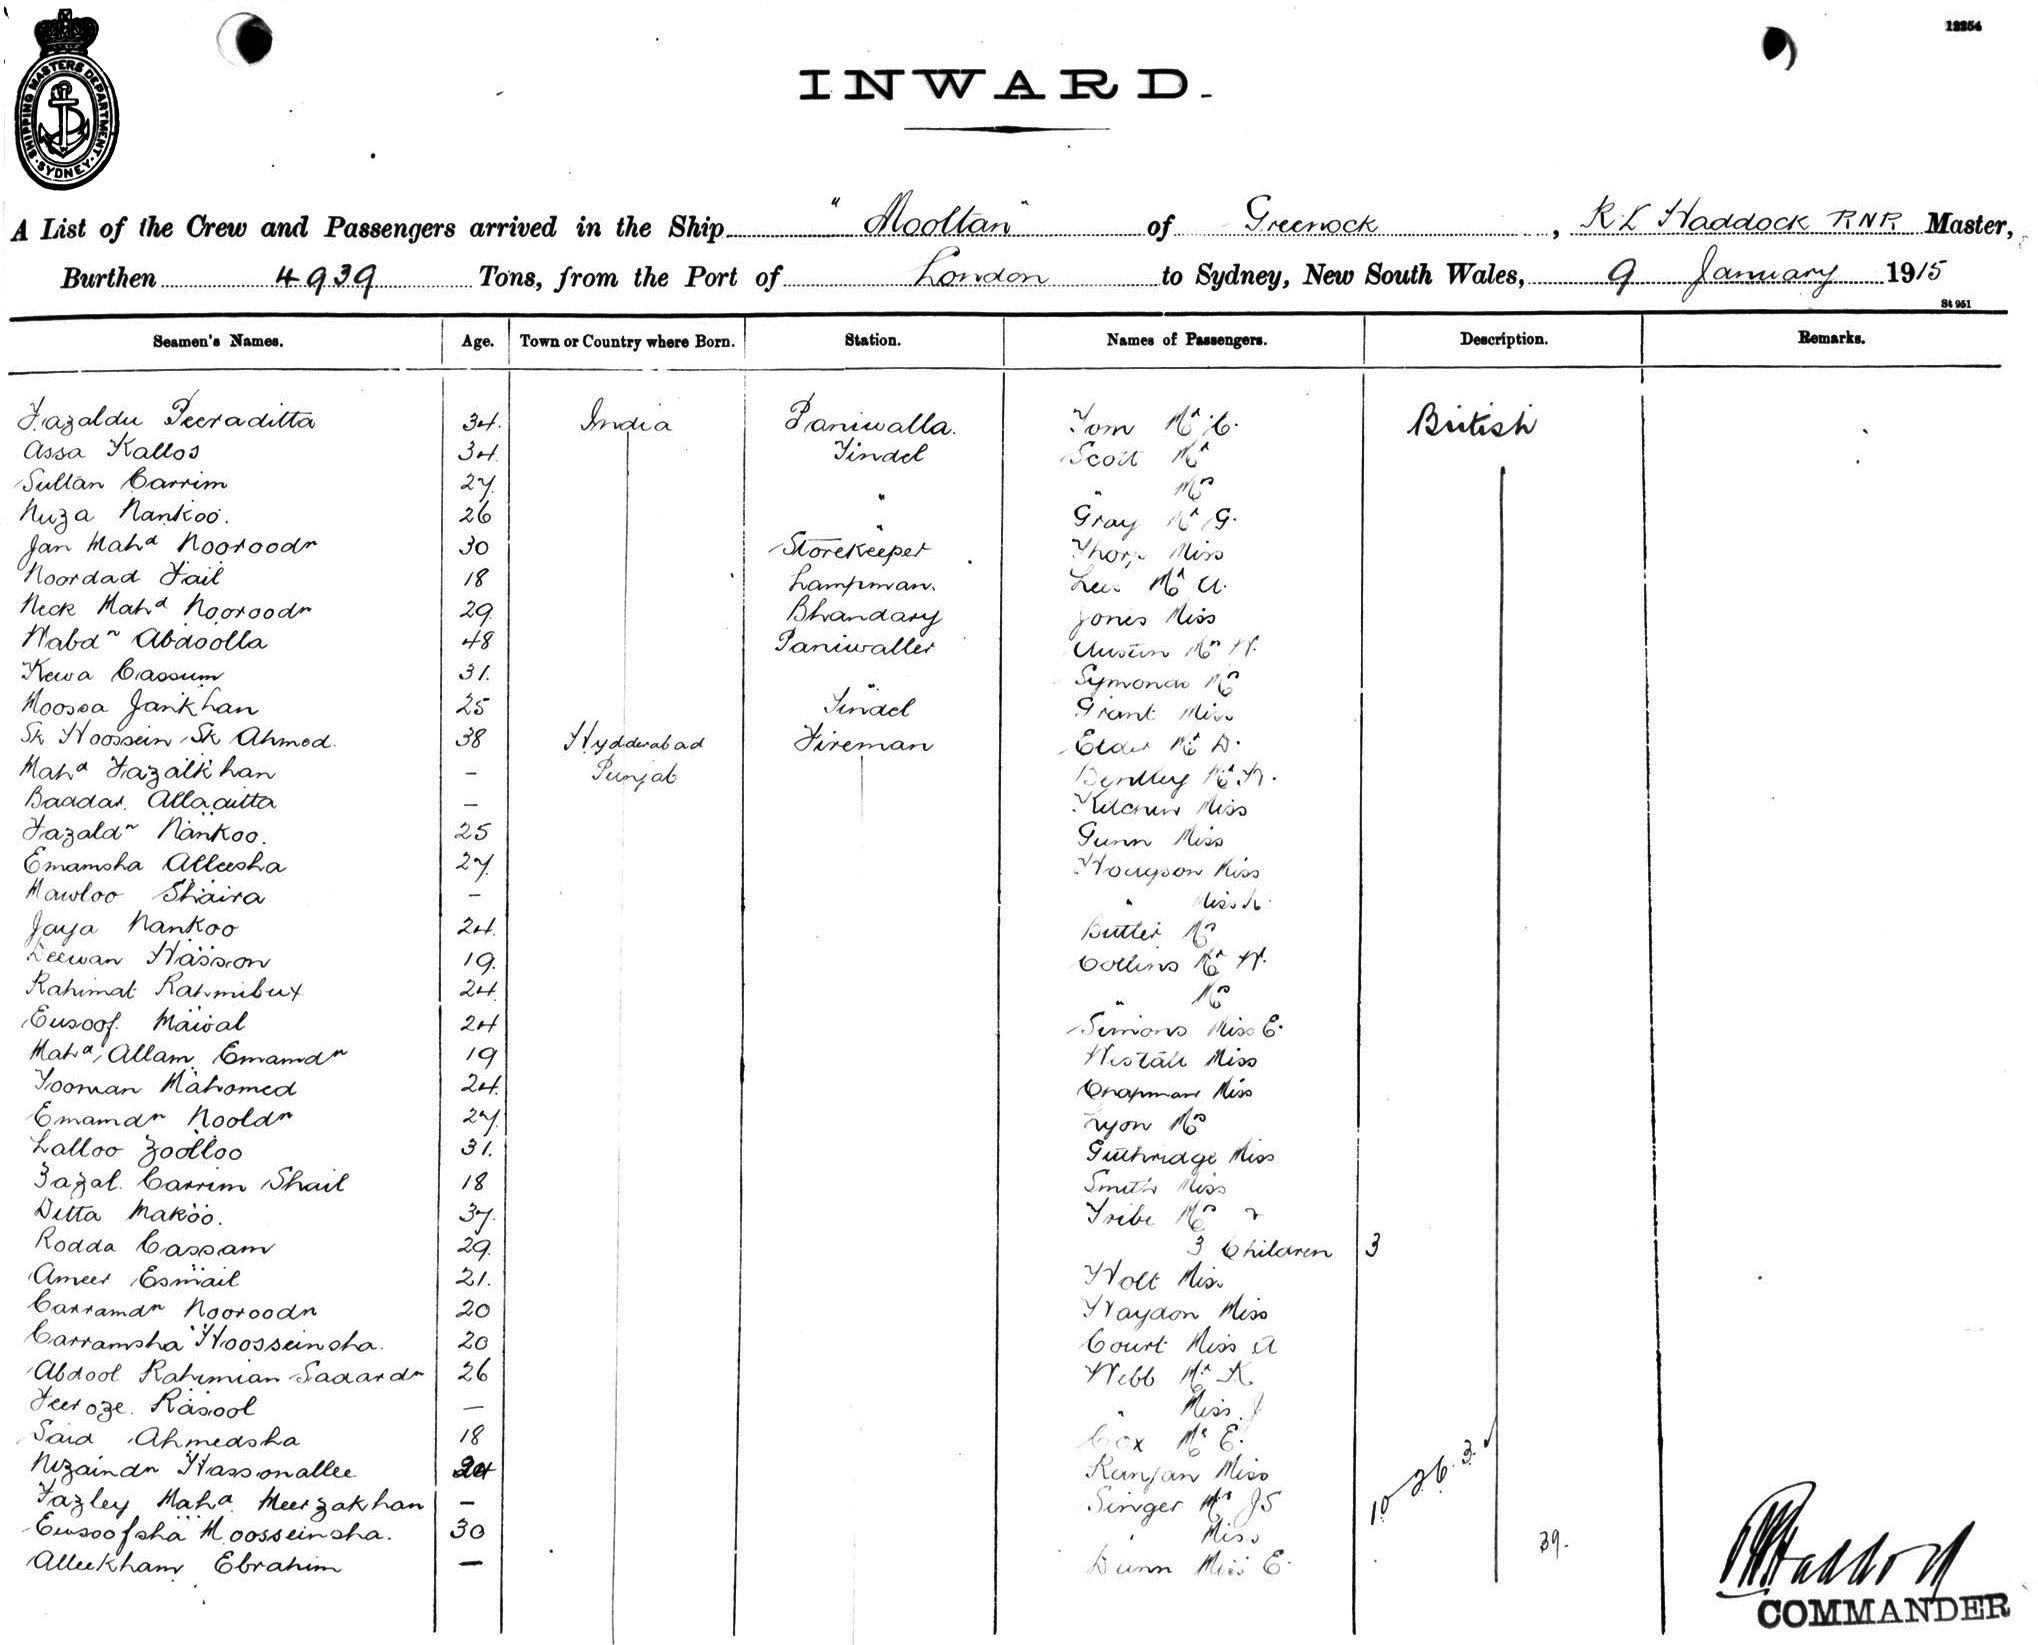 12254
SHIPPING MASTERS DEPARTMENT · SYDNEY ·
INWARD.
A List of the Crew and Passengers arrived in the Ship "Mooltan" of Greenock, R L Haddock RNR Master,
Burthen 4939 Tons, from the Port of London to Sydney, New South Wales, 9 January 1915
St 951
Seamen's Names. Age. Town or Country where Born. Station. Names of Passengers. Description. Remarks.
Fazaldu Peeraditta 34. India Paniwalla. Tom Mr C. British
Assa Kallos 34 Tindel Scott Mr
Sultan Carrim 27. " " Mrs
Nuza Nankoo. 26 " Gray Mr G.
Jan Mahd Nooroodn 30 Storekeeper Thorp Miss
Noordad Fail 18 Lampman. Lees Mr A.
Neck Mahd Nooroodn 29. Bhandary Jones Miss
Wabdn Abdoolla 48 Paniwaller Austin Mrs W.
Kewa Cassum 31. " Symonds Mrs
Moossa Jankhan 25 Tindel Grant Miss
Sk Hoossein Sk Ahmed. 38 Hydderabad Fireman Elder Mr D.
Mahd Fazalkhan - Punjab Bentley Mr
Baddar Alladitta - Kitchin Miss
Fazaldn Nankoo. 25 Gunn Miss
Emamsha Alleesha 27. Hodgson Miss
Mawloo Shaira - " Miss A.
Jaya Nankoo 24. Butler Mrs
Deewan Hasson 19. Collins Mr W.
Rahimat Rahmibux 24. " Mrs
Eusoof Mawal 24 Simons Miss E.
Mahd Allam Emamdn 19 Westall Miss
Tooman Mahomed 24. Chapman Miss
Emamdn Nooldn 27. Lyon Mrs
Lalloo Zoolloo 31. Guthridge Miss
Fazal Carrim Shail 18 Smith Miss
Ditta Makoo. 37. Tribe Mrs &
Rodda Cassam 29. 3 Children 3
Ameer Esmail 21. Holt Miss
Carramdn Nooroodn 20 Haydon Miss
Carramsha Hoosseinsha. 20 Court Miss A
Abdool Rahimian Sadardn 26 Webb Mr K
Feeroze Rasool — " Miss J
Said Ahmedsha 18 Cox Mr E.
Nizaindn Hassonallee 24 Ranjan Miss
Fazley Mahd Meerzakhan - Singer Mr JS
Eusoofsha Hoosseinsha. 30 " Miss
Alleekham Ebrahim — Dunn Miss E.
10 26. 3. ✓
39.
R Haddock
COMMANDER